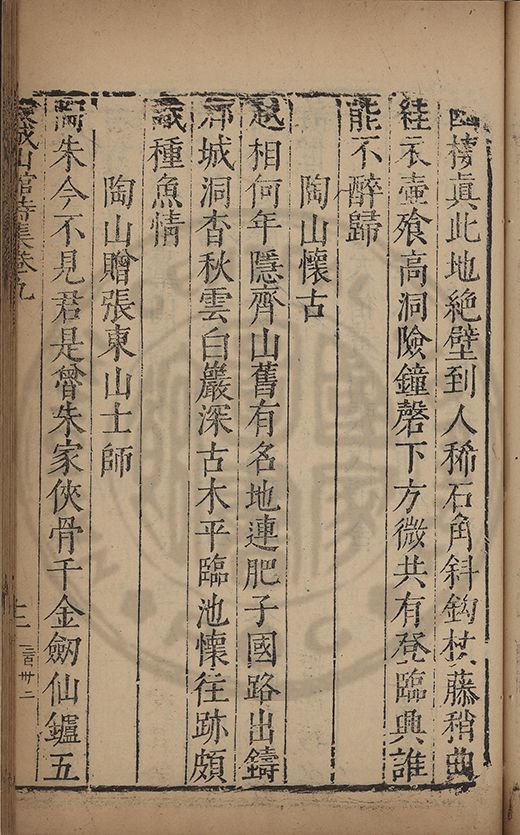 棲眞此地絶壁到人稀石角斜鈎杖藤稍曲
絓衣壺飱高洞險鐘磬下方微共有登臨興誰
能不醉歸
陶山懷古
越相何年隱齊山舊有名地連肥子國路出鑄
城洞杳秋雲白巖深古木平臨池懷往跡頗
識種魚情
陶山贈張東山士師
陶朱今不見君是魯朱家俠骨千金劒仙鑪五
山館詩集卷九
十二
三百卅二